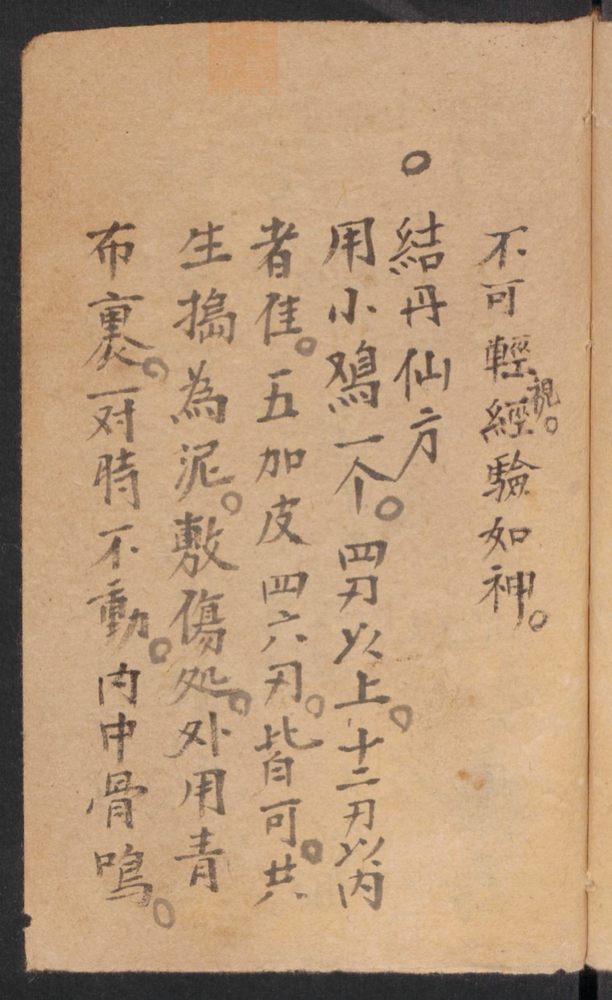 不可輕視。經驗如神。
○結丹仙方
用小鳮一个。四刃以上。十二刃以内
者佳。五加皮四六刃。皆可。共
生搗為泥。敷傷处。外用青
布裹。一对時不動。内中骨鳴。